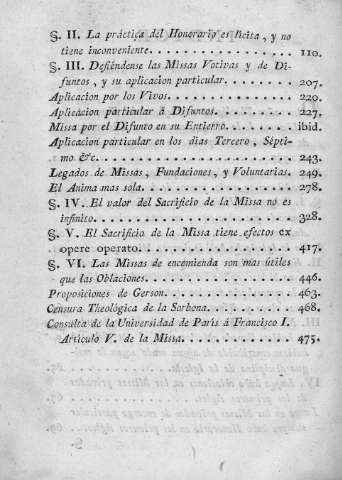 §. II. La práctica del Honorario es lícita, y no
tiene inconveniente. . . . . . . . . . . . . . . . . . . 110.
§. III. Defiéndense las Missas Votivas y de Di-
funtos, y su aplicacion particular. . . . . . . . . . 207.
Aplicacion por los Vivos. . . . . . . . . . . . . . . . 220.
Aplicacion particular á Difuntos. . . . . . . . . . . 227.
Missa por el Difunto en su Entierro. . . . . . . . . ibid.
Aplicacion particular en los dias Tercero, Sépti-
mo &c. . . . . . . . . . . . . . . . . . . . . . . . . . 243.
Legados de Missas, Fundaciones, y Voluntarias. 249.
El Anima mas sola. . . . . . . . . . . . . . . . . . . . 278.
§. IV. El valor del Sacrificio de la Missa no es
infinito. . . . . . . . . . . . . . . . . . . . . . . . . . 328.
§. V. El Sacrificio de la Missa tiene efectos ex
opere operato. . . . . . . . . . . . . . . . . . . . . . 417.
§. VI. Las Missas de encomienda son mas útiles
que las Oblaciones. . . . . . . . . . . . . . . . . . . 446.
Proposiciones de Gerson. . . . . . . . . . . . . . . . 463.
Censura Theológica de la Sorbona. . . . . . . . . . 468.
Consulta de la Universidad de París á Francisco I.
Articulo V. de la Missa. . . . . . . . . . . . . . . . 475.